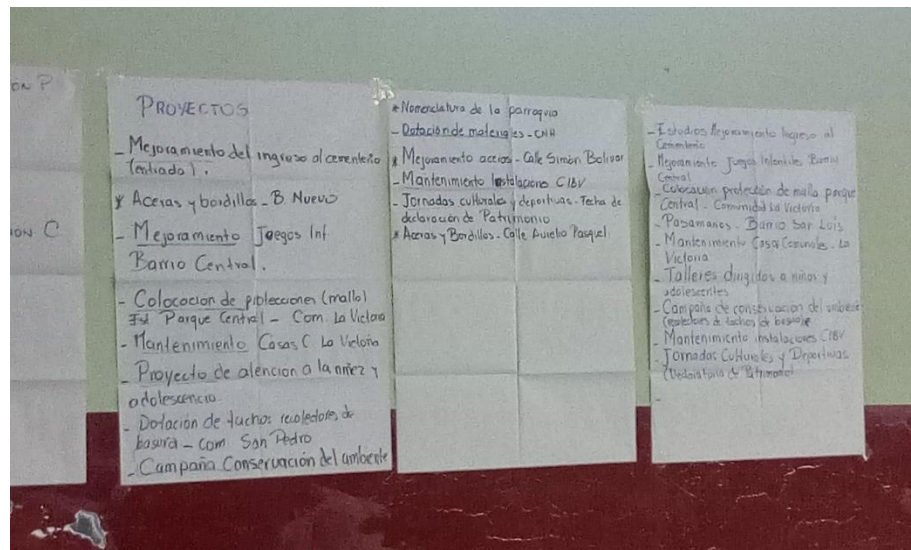 ON P
ON C
PROYECTOS
- Mejoramiento del ingreso al cementerio
(entrada).
* Aceras y bordillos - B. Nuevo
- Mejoramiento Juegos Inf.
Barrio Central.
- Colocacion de protecciones (malla)
Parque Central - Com. La Victoria
- Mantenimiento Casas C. La Victoria
- Proyecto de atención a la niñez y
adolescencia
- Dotación de tachos recolectores de
basura - com San Pedro
- Campaña Conservación del ambiente
* Nomenclatura de la parroquia
- Dotación de materiales - CNH
* Mejoramiento aceras - Calle Simón Bolivar
- Mantenimiento Instalaciones CIBV
- Jornadas culturales y deportivas - Fecha de
declaración de Patrimonio
* Aceras y Bordillos - Calle Aurelio Pasquel
- Estudios Mejoramiento Ingreso al
Cementerio
- Mejoramiento Juegos Infantiles Barrio
Central
- Colocación protección de malla parque
Central - Comunidad La Victoria
- Pasamanos - Barrio San Luis
- Mantenimiento Casas Comunales - La
Victoria
- Talleres dirigidos a niños y
adolescentes
- Campaña de conservación del ambiente
(recolectores de tachos de basura)
- Mantenimiento instalaciones CIBV
- Jornadas Culturales y Deportivas
(Declaratoria de Patrimonio)
-